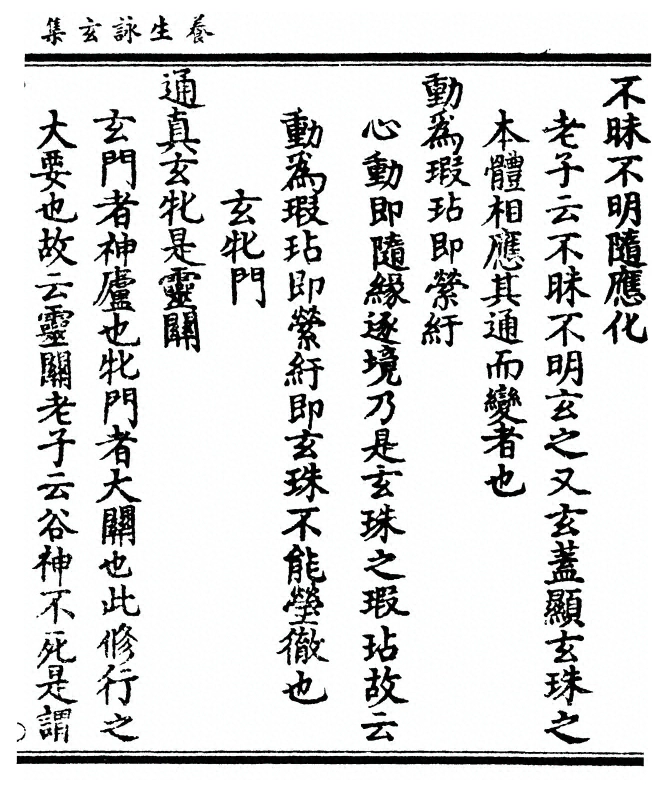 養生詠玄集
不昧不明隨應化
老子云不昧不明玄之又玄蓋顯玄珠之
本體相應其通而變者也
動為瑕玷即縈紆
心動即隨緣逐境乃是玄珠之瑕玷故云
動為瑕玷即縈紆即玄珠不能瑩徹也
玄牝門
通真玄牝是靈關
玄門者神廬也牝門者大關也此修行之
大要也故云靈關老子云谷神不死是謂